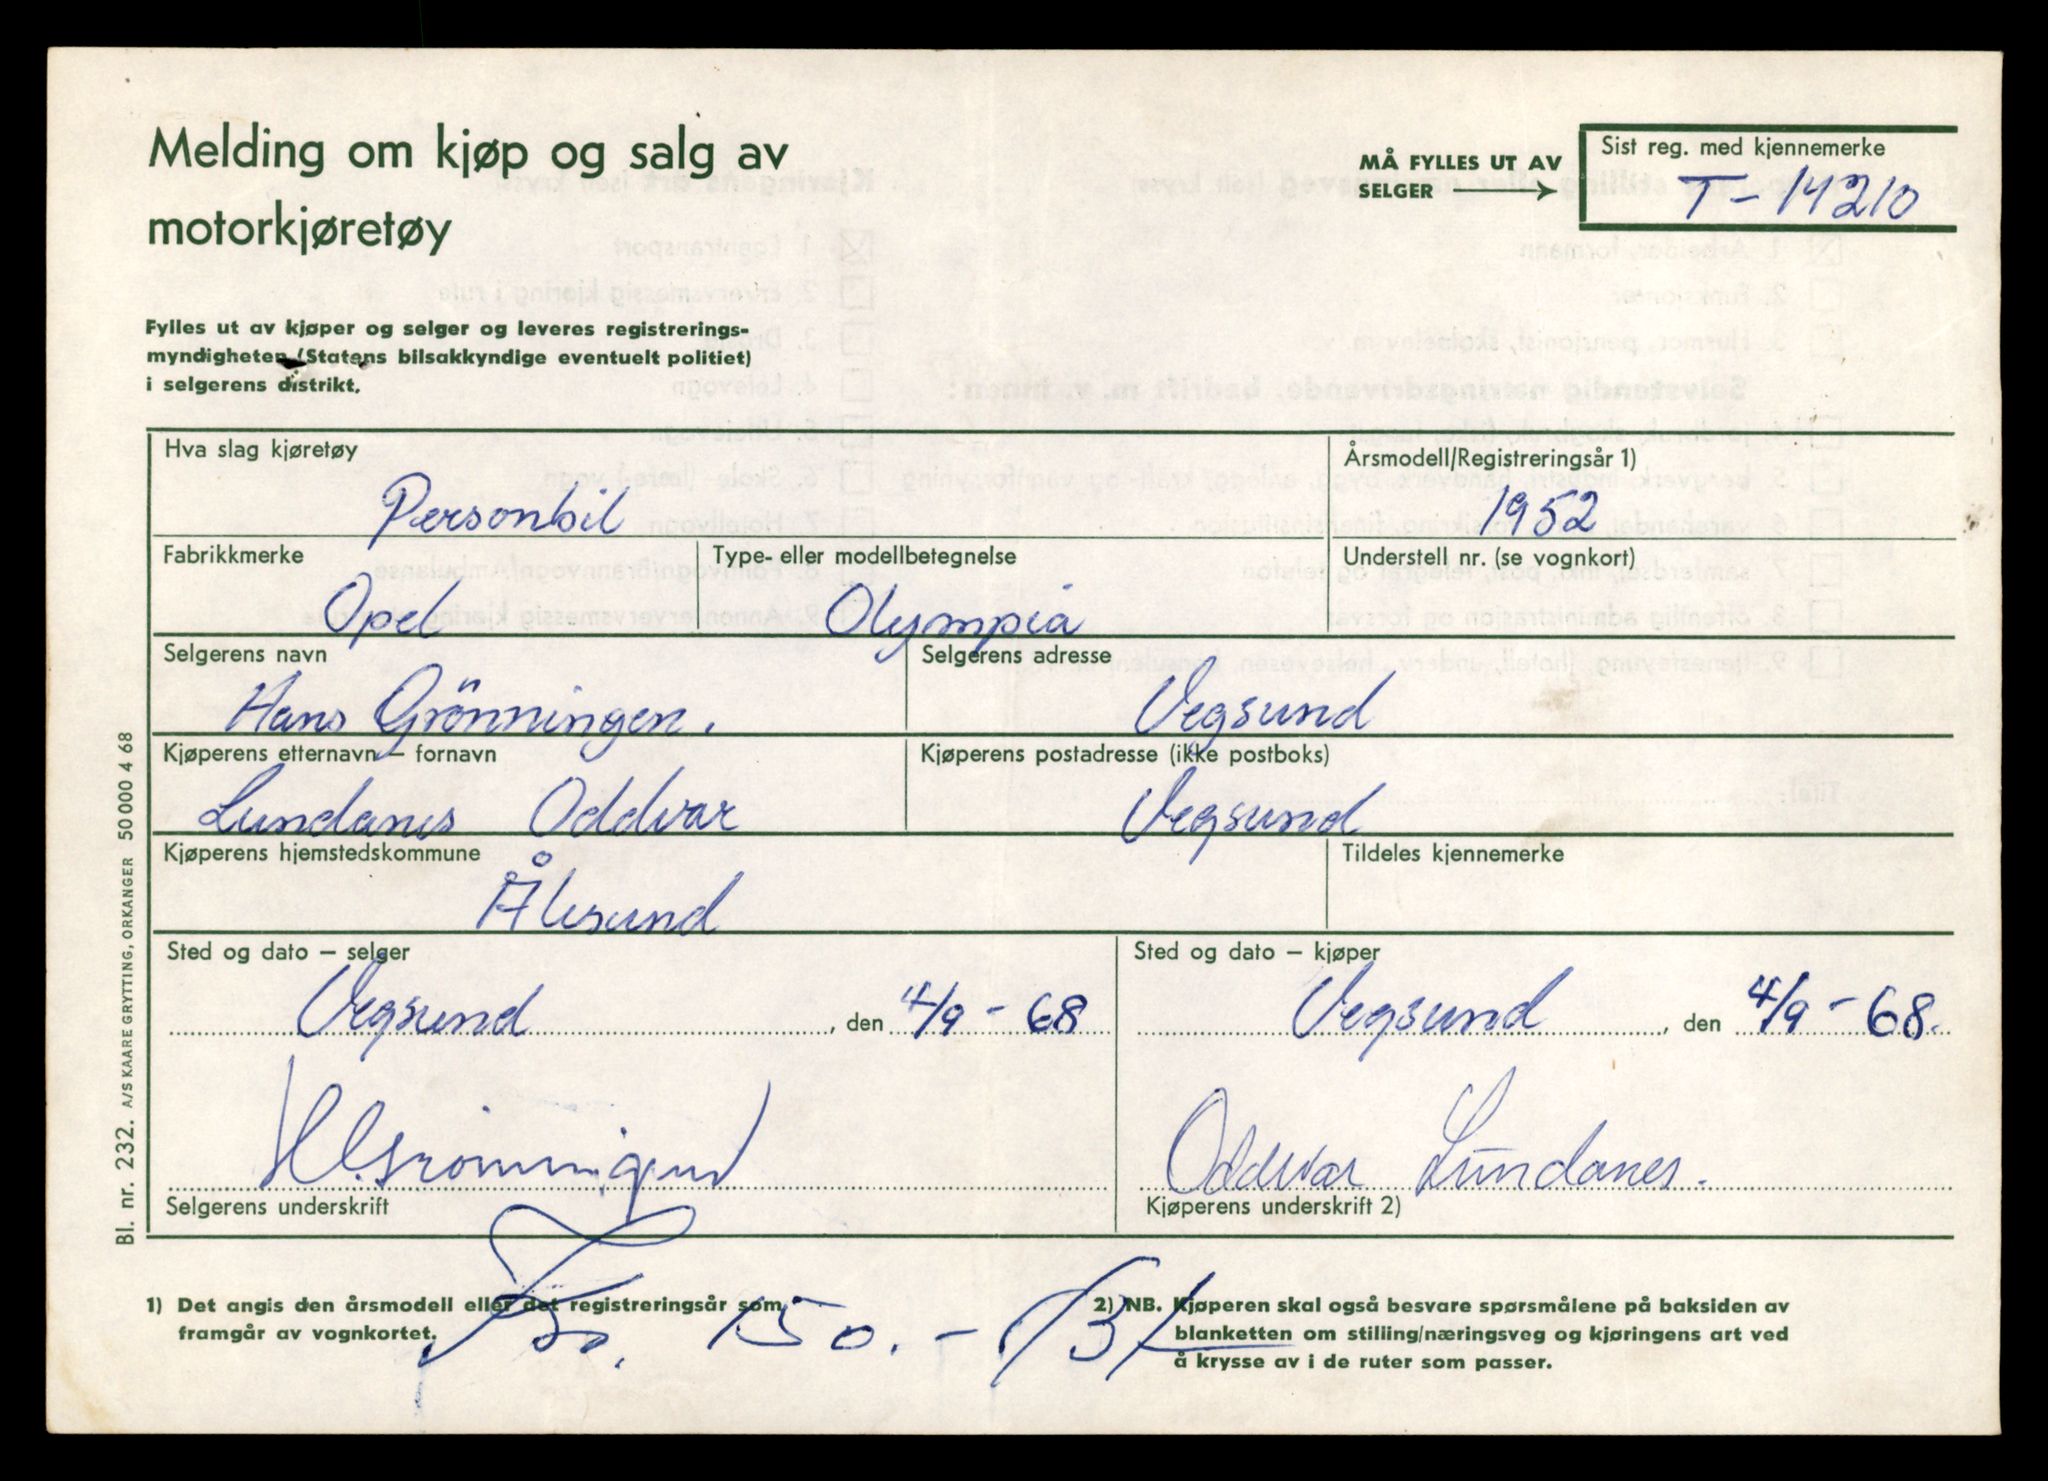 Melding om kjøp og salg av
motorkjøretøy
MÅ FYLLES UT AV
SELGER
Sist reg. med kjennemerke
T - 14210
Fylles ut av kjøper og selger og leveres registrerings-
myndigheten (Statens bilsakkyndige eventuelt politiet)
i selgerens distrikt.
Hva slag kjøretøy
Personbil
Årsmodell/Registreringsår 1)
1952
Fabrikkmerke
Opel
Type- eller modellbetegnelse
Olympia
Understell nr. (se vognkort)
Selgerens navn
Hans Grönningen.
Selgerens adresse
Vegsund
Kjøperens etternavn – fornavn
Lundanes Oddvar
Kjøperens postadresse (ikke postboks)
Vegsund
Kjøperens hjemstedskommune
Ålesund
Tildeles kjennemerke
Sted og dato – selger
Vegsund , den 4/9 - 68
Sted og dato – kjøper
Vegsund , den 4/9 - 68.
H. Grönningen
Selgerens underskrift
Oddvar Lundanes.
Kjøperens underskrift 2)
1) Det angis den årsmodell eller det registreringsår som
framgår av vognkortet.
150.-
2) NB. Kjøperen skal også besvare spørsmålene på baksiden av
blanketten om stilling/næringsveg og kjøringens art ved
å krysse av i de ruter som passer.
Bl. nr. 232. A/S KAARE GRYTTING, ORKANGER 50 000 4 68